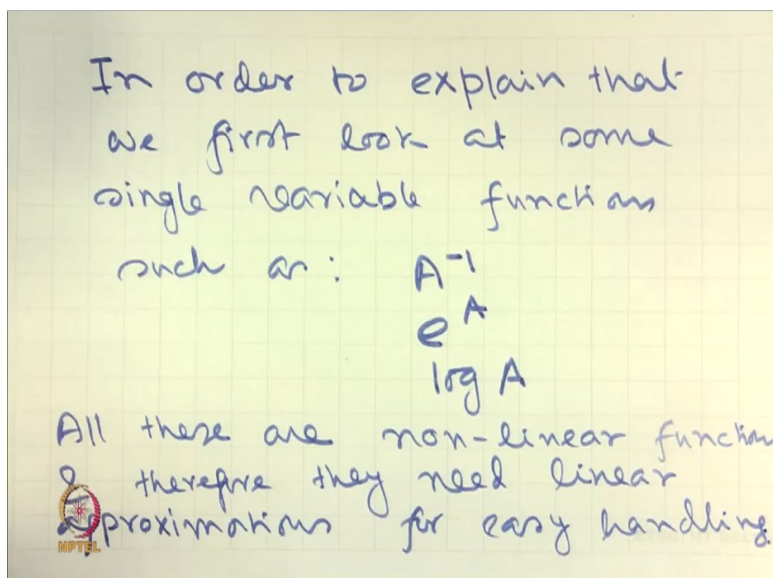 In order to explain that
we first look at some
single variable functions
such as: A⁻¹
e^A
log A
All these are non-linear function
& therefore they need linear
approximations for easy handling.
NPTEL